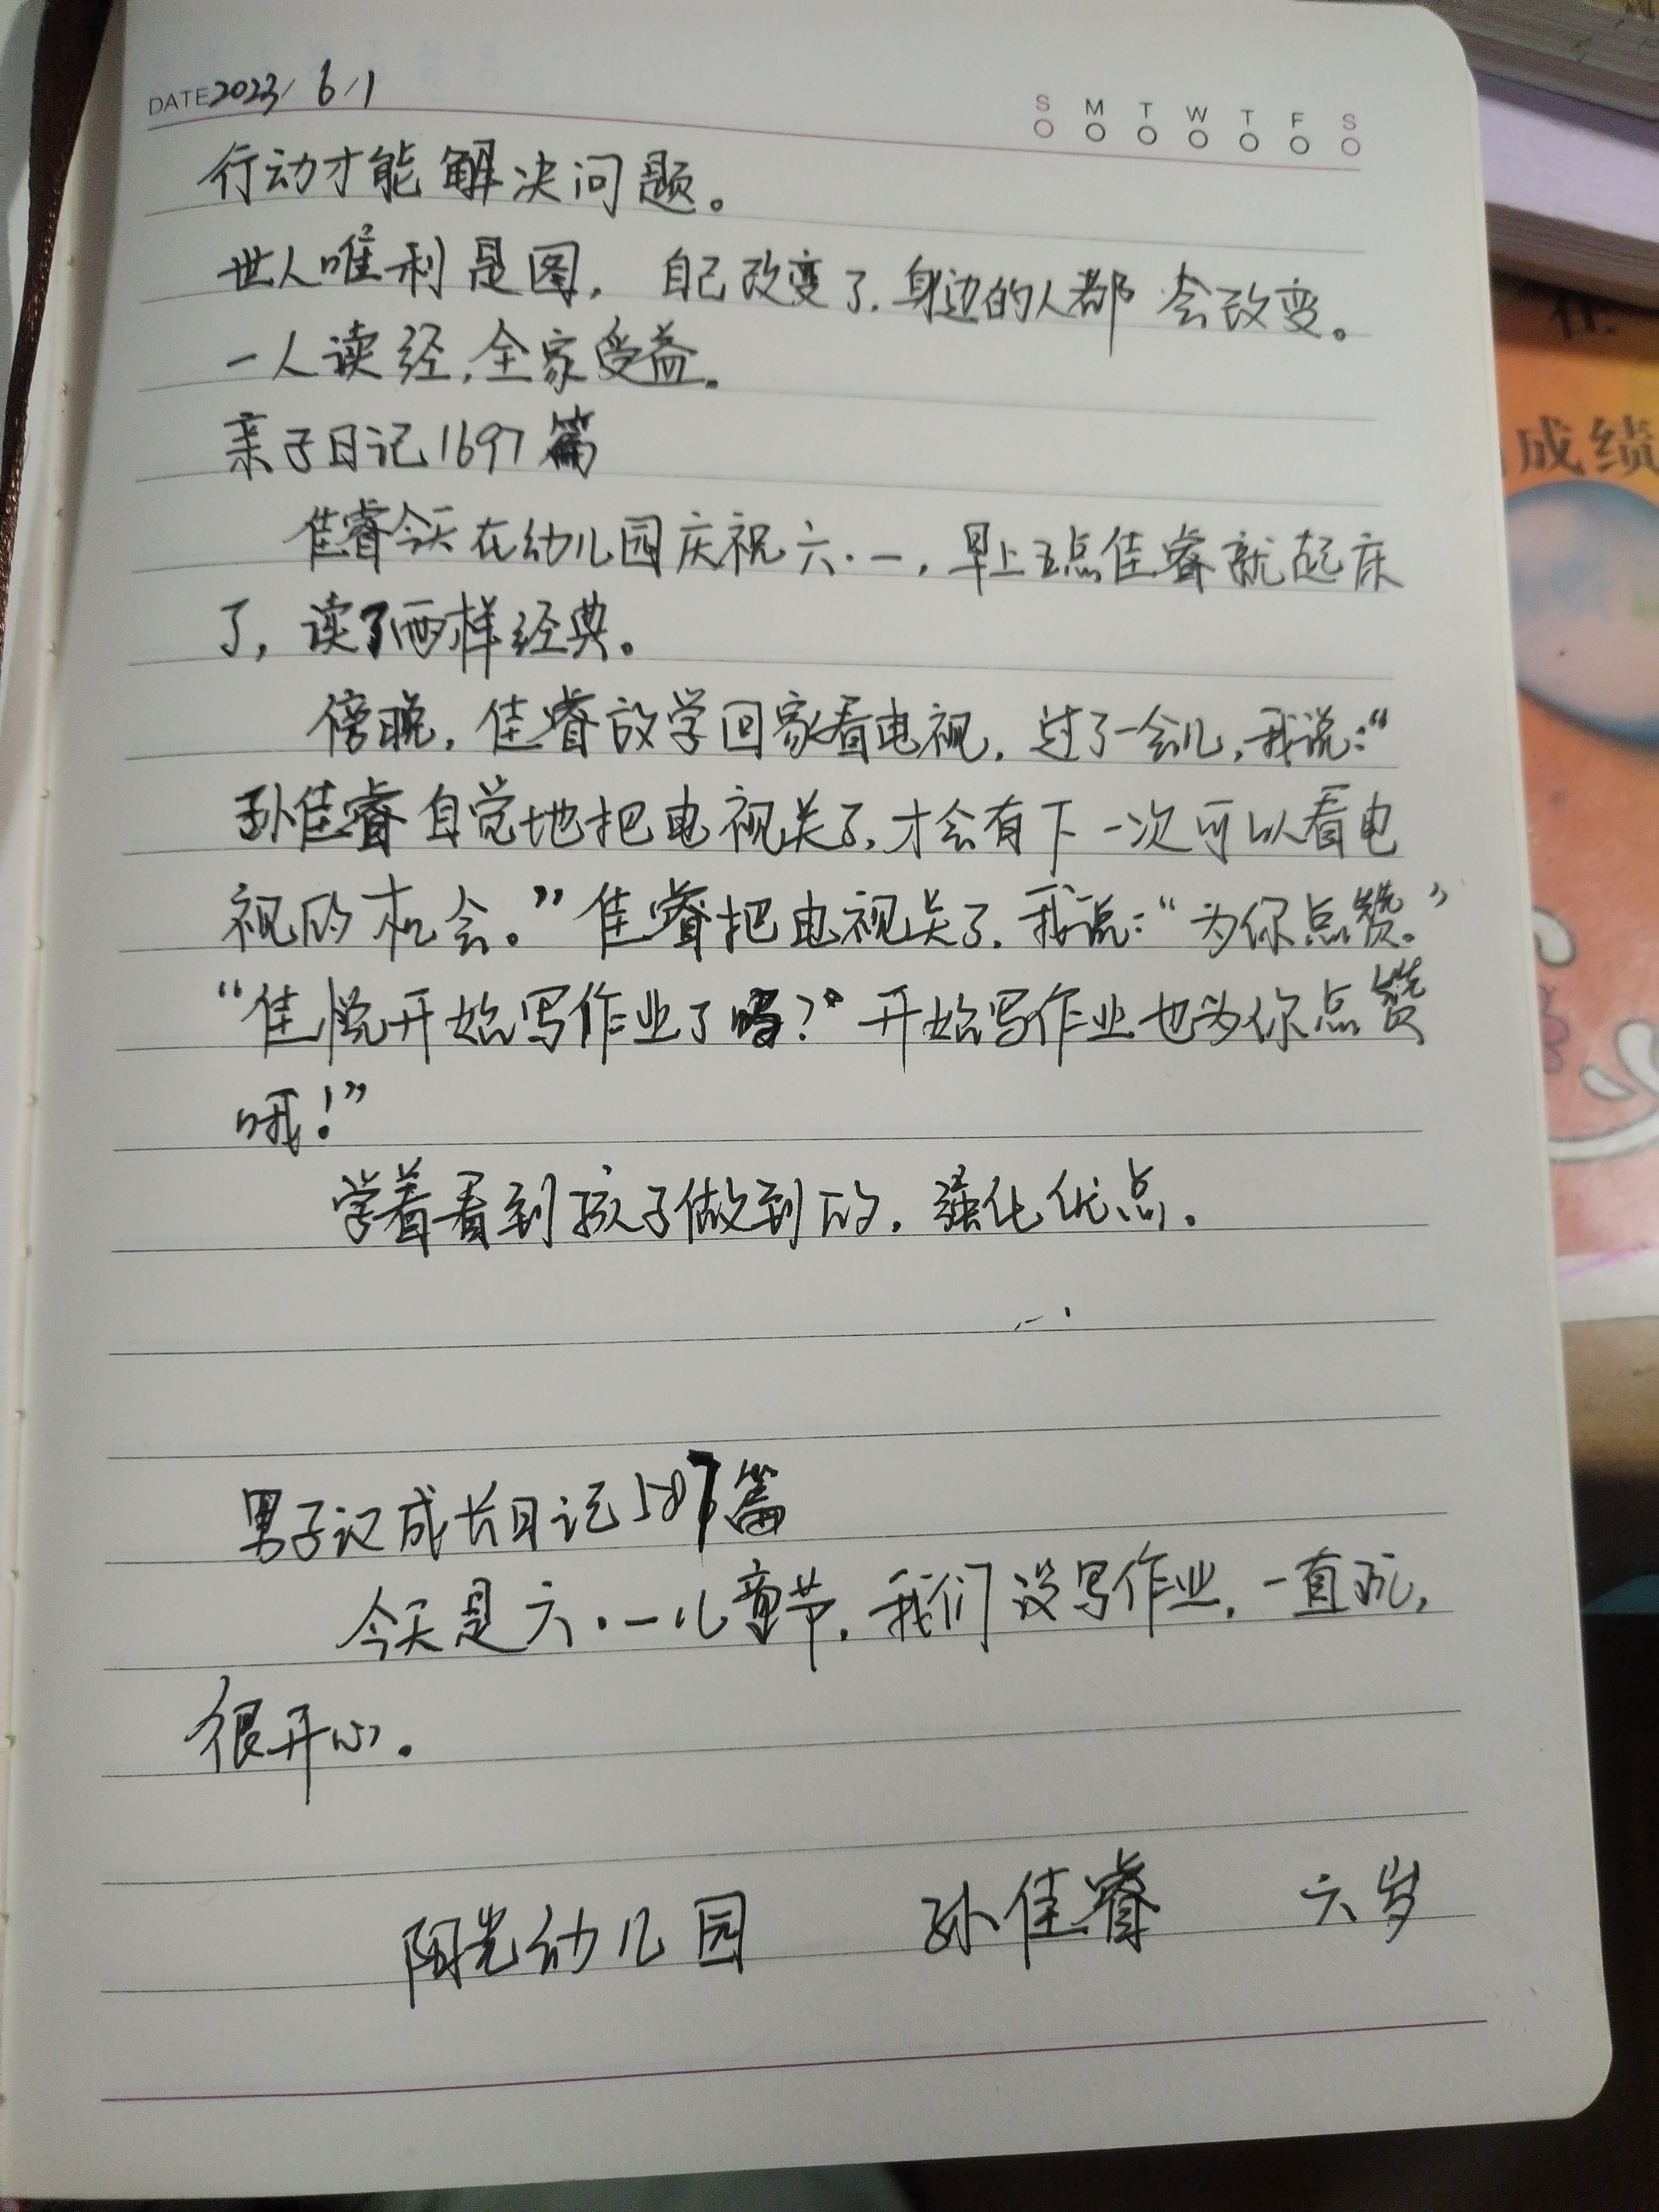 DATE 2023/6/1
S M T W T F S
行动才能解决问题。
世人唯利是图，自己改变了，身边的人都会改变。
一人读经，全家受益。
亲子日记1697篇
佳睿今天在幼儿园庆祝六·一，早上五点佳睿就起床
了，读了两样经典。
傍晚，佳睿放学回家看电视，过了一会儿，我说：“
孙佳睿自觉地把电视关了，才会有下一次可以看电
视的机会。”佳睿把电视关了，我说：“为你点赞。”
“佳悦开始写作业了吗？”开始写作业也为你点赞
哦！”
学着看到孩子做到的，强化优点。
男子汉成长日记587篇
今天是六·一儿童节，我们没写作业，一直玩，
很开心。
阳光幼儿园 孙佳睿 六岁
成绩